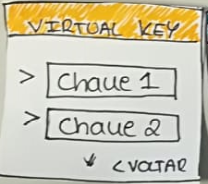 VIRTUAL KEY
> Chave 1
> Chave 2
< VOLTAR